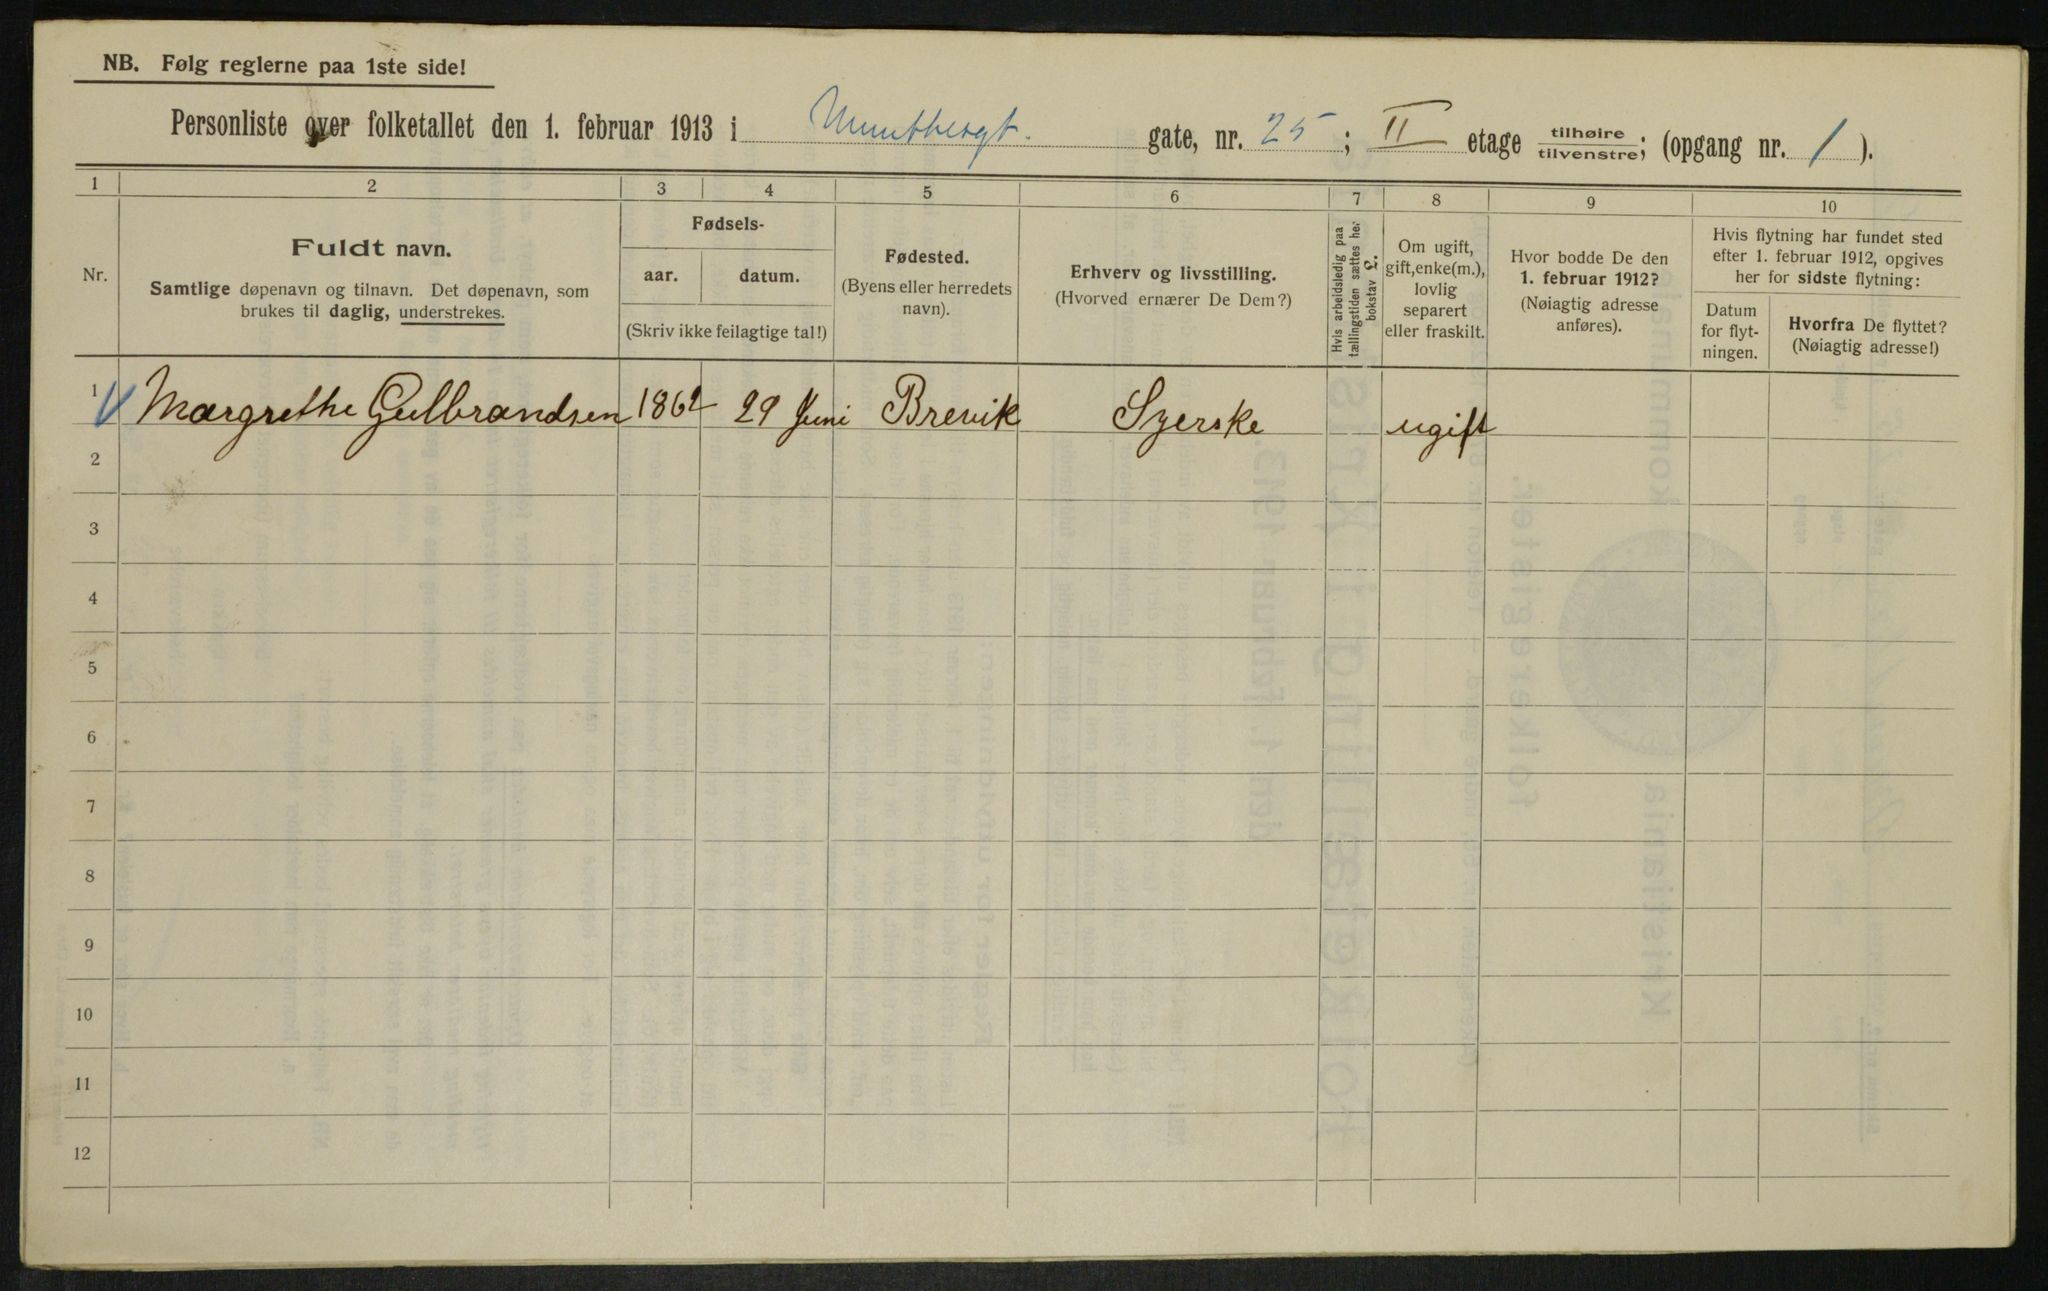 NB. Følg reglerne paa 1ste side!
Personliste over folketallet den 1. februar 1913 i Munthesgt. gate, nr. 25; II etage tilhøire/tilvenstre; (opgang nr. 1).
1 2 3 4 5 6 7 8 9 10
Nr.
Fuldt navn.
Samtlige døpenavn og tilnavn. Det døpenavn, som
brukes til daglig, understrekes.
Fødsels-
aar. datum.
(Skriv ikke feilagtige tal!)
Fødested.
(Byens eller herredets
navn).
Erhverv og livsstilling.
(Hvorved ernærer De Dem?)
Hvis arbeidsledig paa
tællingstiden sættes her
bokstav L.
Om ugift,
gift, enke(m.),
lovlig
separert
eller fraskilt.
Hvor bodde De den
1. februar 1912?
(Nøiagtig adresse
anføres).
Hvis flytning har fundet sted
efter 1. februar 1912, opgives
her for sidste flytning:
Datum
for flyt-
ningen.
Hvorfra De flyttet?
(Nøiagtig adresse!)
1 Margrethe Gulbrandsen 1862 29 Juni Brevik Syerske ugift
2
3
4
5
6
7
8
9
10
11
12